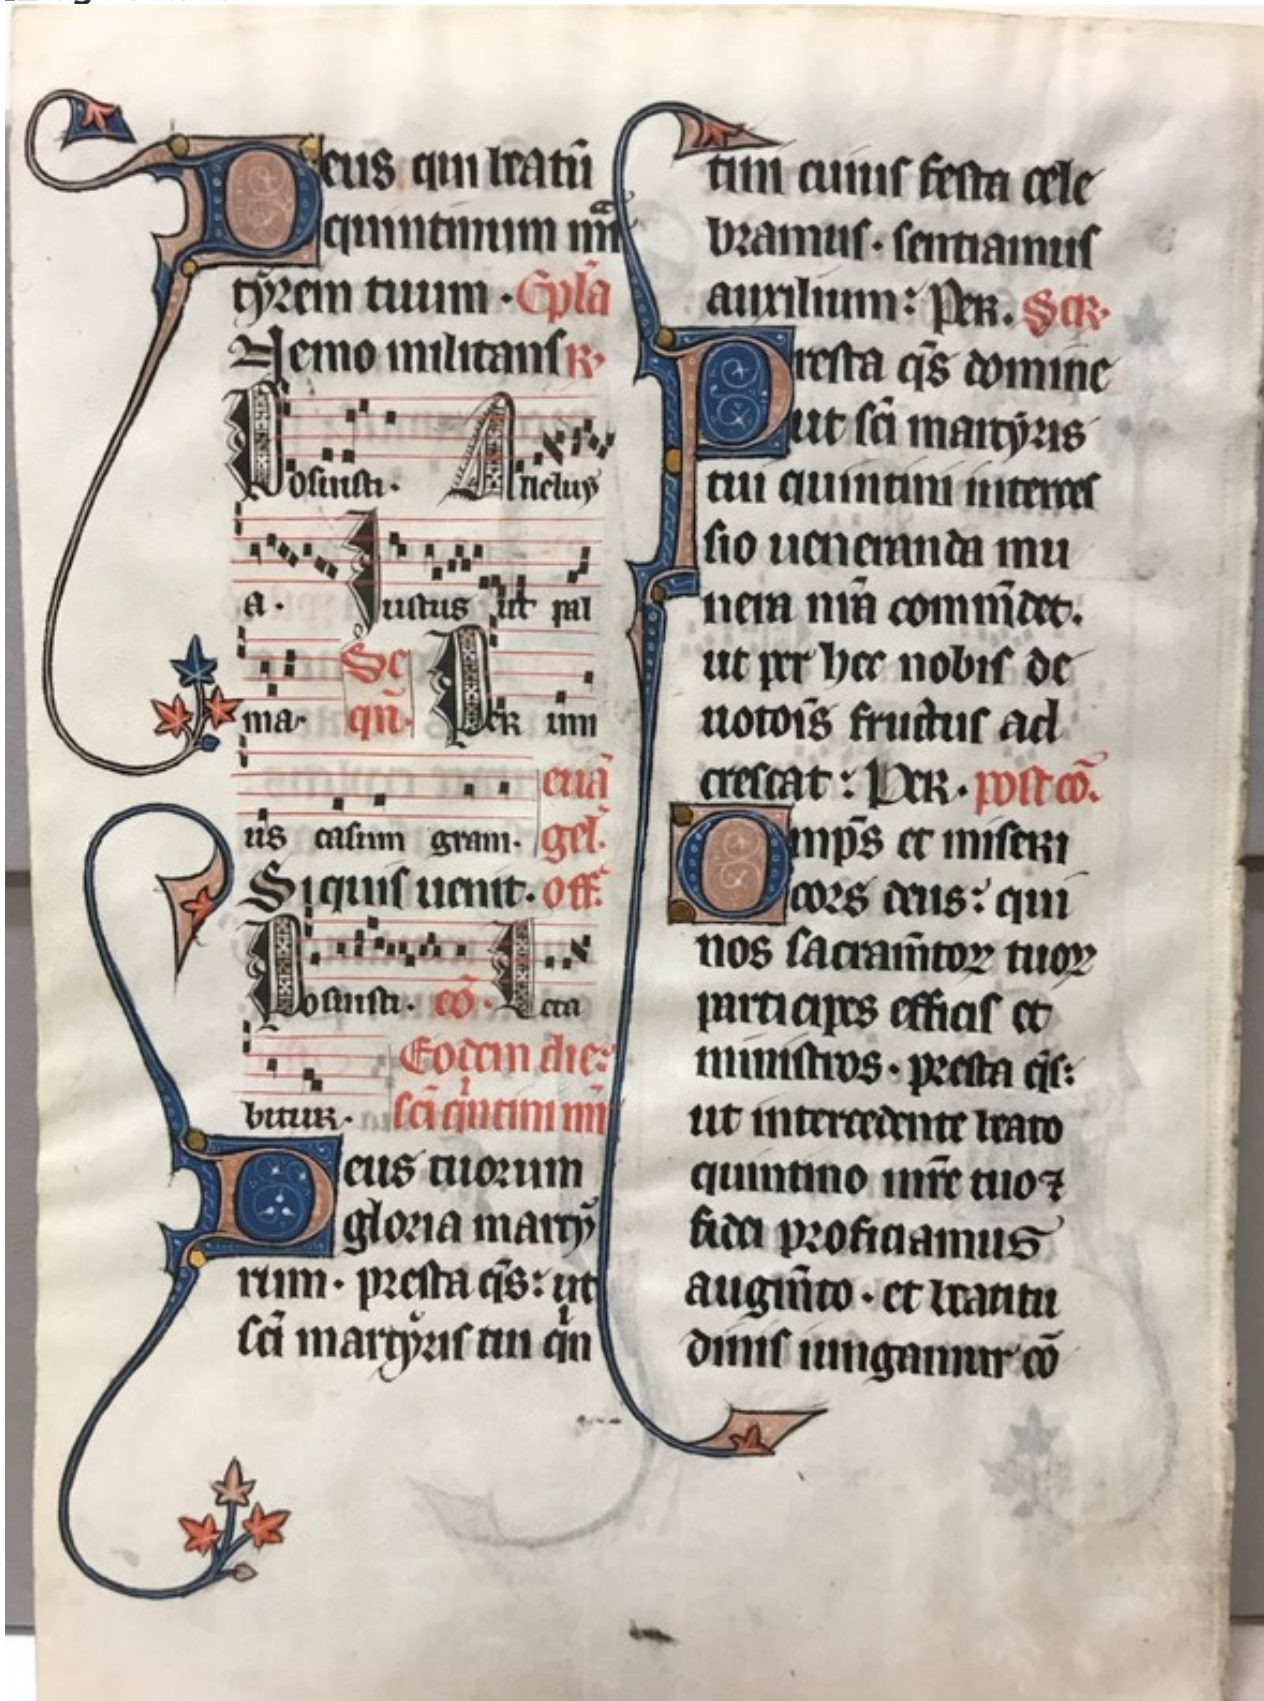 Deus qui beatū
quintinum mͣr
tÿrem tuum · Ep̄la
Nemo militans R·
Posuisti · Alleluÿ
a · Iustus ut pal
ma · Se
qn̄ · Per un
ius casum gram · euā
gel̄ ·
Si quis uenit · off̄
Posuisti · cō · Leta
bitur · Eodem die :
sc̄i qͥntini mr̄
Deus tuorum
gloria martÿ
rum · presta q̄s : ut
sc̄i martÿris tui qͥn
tini cuius festa cele
bramus · sentiamus
auxilium : Per · Secr ·
Presta q̄s domine
ut sc̄i martÿris
tui quintini interces
sio ueneranda mu
nera nr̄a com̄ndet ·
ut per hec nobis de
uotōis fructus ad
crescat : Per · post cō ·
Omp̄s et miseri
cors deus : qui
nos sacram̄toꝝ tuoꝝ
participes efficis et
ministros · presta q̄s :
ut intercedente beato
quintino mr̄e tuo ⁊
fidei proficiamus
augm̄to · et beatitu
dinis iungamur cō